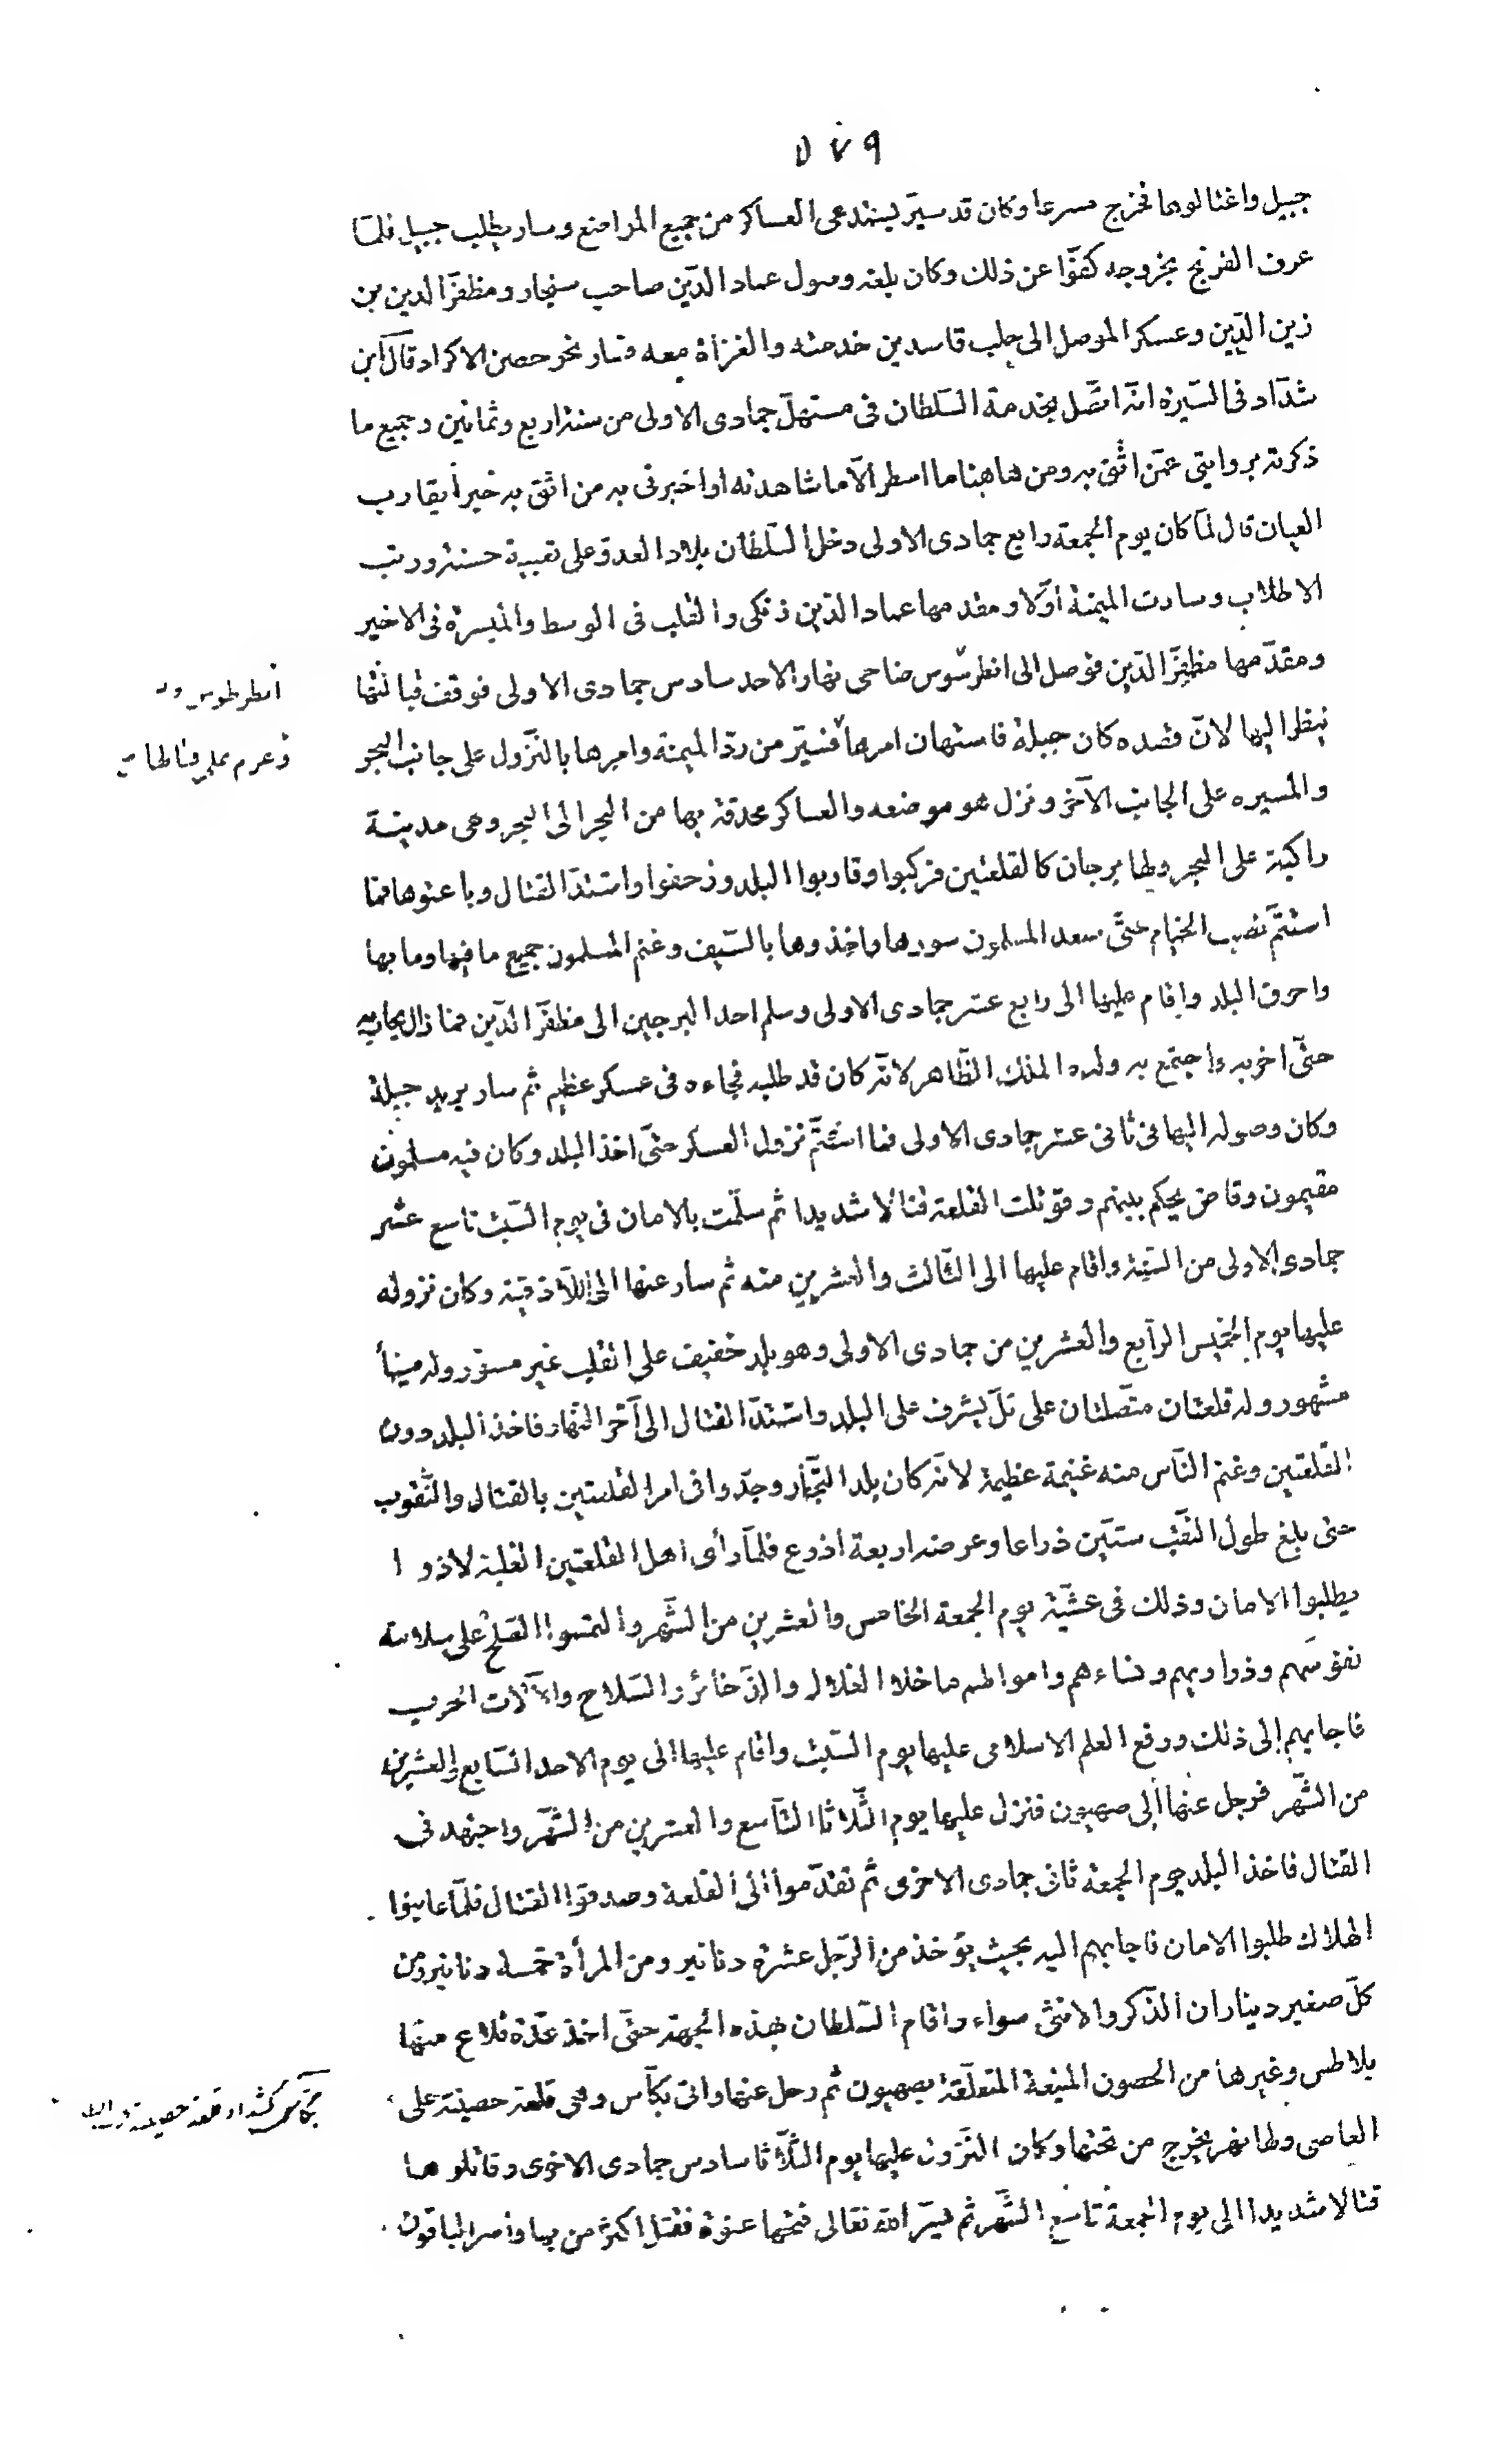 ٥٧٩
جبيل واغتالوها فخرج مسرعا وكان قد سيّر يستدعى العساكر من جميع المواضع وسار يطلب جبيل فلمّا
عرف الفرنج بخروجه كفّوا عن ذلك وكان بلغه وصول عماد الدّين صاحب سنجار ومظفّر الدين بن
زين الدّين وعسكر الموصل الى حلب قاصدين خدمته والغزاة معه فسار نحو حصن الاكراد قال ابن
شدّاد فى السّيرة انّه اتّصل بخدمة السّلطان فى مستهلّ جمادى الاولى من سنة اربع وثمانين وجميع ما
ذكرته بروايتى عمّن اثق به ومن هاهنا ما اسطر الّا ما شاهدته او اخبرنى به من اثق به خبرا يقارب
العيان قال لمّا كان يوم الجمعة رابع جمادى الاولى دخل السّلطان بلاد العدوّ على تعبية حسنة ورتب
الاطلاب وسارت الميمنة اوّلا ومقدمها عماد الدّين زنكى والقلب فى الوسط والميسرة فى الاخير
ومقدّمها مظفّر الدّين فوصل الى انطرسوس ضاحى نهار الاحد سادس جمادى الاولى فوقف قبالتها
ينظر اليها لانّ قصده كان جبلة فاستهان امرها فسيّر من ردّ الميمنة وامرها بالنّزول على جانب البحر
والميسره على الجانب الآخر ونزل هو موضعه والعساكر محدقة بها من البحر الى البحر وهى مدينة
راكبة على البحر ولها برجان كالقلعتين فركبوا وقاربوا البلد وزحفوا واشتدّ القتال وباغتوها فما
استتمّ نصب الخيام حتّى صعد المسلمون سورها واخذوها بالسّيف وغنم المسلمون جميع ما فيها وما بها
واحرق البلد واقام عليها الى رابع عشر جمادى الاولى وسلم احد البرجين الى مظفّر الدّين فما زال يحاربه
حتّى اخربه واجتمع به ولده الملك الظّاهر لانّه كان قد طلبه فجاءه فى عسكر عظيم ثم سار يريد جبلة
وكان وصوله اليها فى ثانى عشر جمادى الاولى فما استتمّ نزول العسكر حتّى اخذ البلد وكان فيه مسلمون
مقيمون وقاض يحكم بينهم وقوتلت القلعة قتالا شديدا ثم سلّمت بالامان فى يوم السّبت تاسع عشر
جمادى الاولى من السّنة واقام عليها الى الثّالث والعشرين منه ثم سار عنها الى اللّاذقية وكان نزوله
عليها يوم الخميس الرّابع والعشرين من جمادى الاولى وهو بلد خفيف على القلب غير مسوّر وله مينأ
مشهور وله قلعتان متّصلتان على تلّ يشرف على البلد واشتدّ القتال الى آخر النّهار فاخذ البلد دون
القلعتين وغنم النّاس منه غنيمة عظيمة لانّه كان بلد التّجّار وجدّوا فى امر القلعتين بالقتال والنّقوب
حتى بلغ طول النّقب ستّين ذراعا وعرضه اربعة اذرع فلمّا رأى اهل القلعتين الغلبة لاذوا
يطلبوا الامان وذلك فى عشيّة يوم الجمعة الخامس والعشرين من الشّهر والتمسوا الصّلح على سلامة
نفوسهم وذراريهم ونساءهم واموالهم ما خلا الغلال والذّخائر والسّلاح وآلات الحرب
فاجابهم الى ذلك ورفع العلم الاسلامى عليها يوم السّبت واقام عليها الى يوم الاحد السّابع والعشرين
من الشّهر فرحل عنها الى صهيون فنزل عليها يوم الثّلاثا التّاسع والعشرين من الشّهر واجتهد فى
القتال فاخذ البلد يوم الجمعة ثانى جمادى الاخرى ثم تقدّموا الى القلعة وصدقوا القتال فلمّا عاينوا
الهلاك طلبوا الامان فاجابهم اليه بحيث يؤخذ من الرّجل عشرة دنانير ومن المرأة خمسة دنانير ومن
كلّ صغير ديناران الذّكر والانثى سواء واقام السّلطان بهذه الجهة حتّى اخذ عدّة قلاع منها
بلاطس وغيرها من الحصون المنيعة المتعلّقة بصهيون ثم رحل عنها واتى بكّاس وهى قلعة حصينة على
العاصى ولها نهر يخرج من تحتها وكان النّزول عليها يوم الثّلاثا سادس جمادى الاخرى وقاتلوها
قتالا شديدا الى يوم الجمعة تاسع الشّهر ثم يسّر الله تعالى فتحها عنوة فقتل اكثر من بها واسر الباقون
انطرطوس
وعزم على قتالها
بكّاس كشداد قلعة حصينة